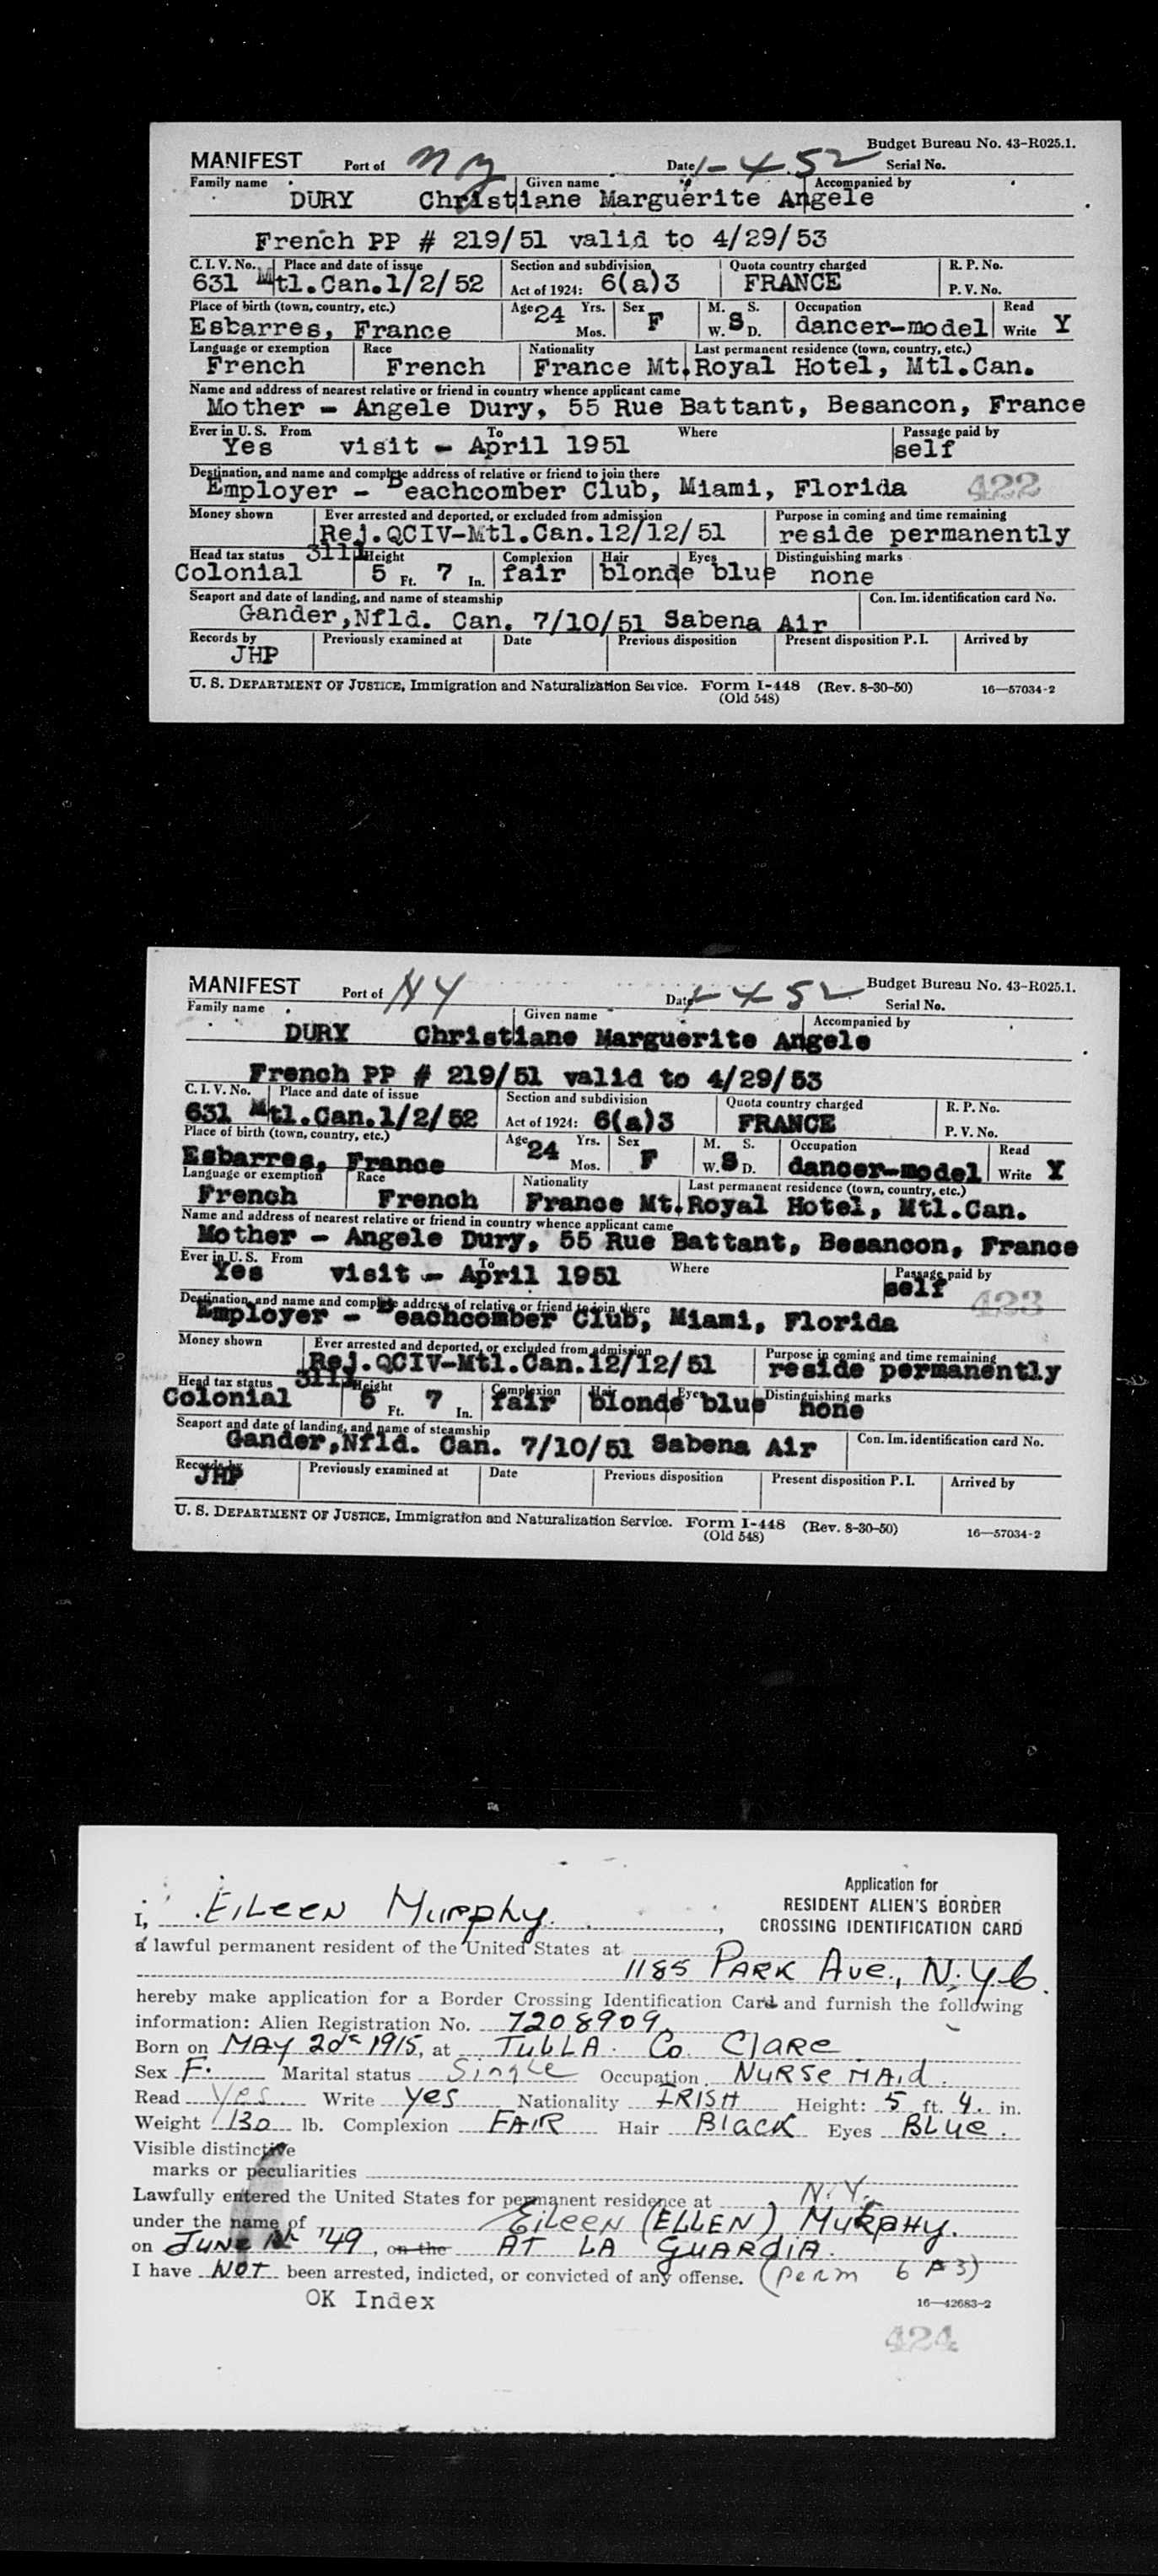 Budget Bureau No. 43-R025.1.
MANIFEST Port of NY Date 1-4-52 Serial No.
Family name Given name Accompanied by
DURY Christiane Marguerite Angele
French PP # 219/51 valid to 4/29/53
C. I. V. No. Place and date of issue Section and subdivision Quota country charged R. P. No.
631 Mtl.Can.1/2/52 Act of 1924: 6(a)3 FRANCE P. V. No.
Place of birth (town, country, etc.) Age 24 Yrs. Sex M. S. Occupation Read
Esbarres, France Mos. F W. S D. dancer-model Write Y
Language or exemption Race Nationality Last permanent residence (town, country, etc.)
French French France Mt.Royal Hotel, Mtl.Can.
Name and address of nearest relative or friend in country whence applicant came
Mother - Angele Dury, 55 Rue Battant, Besancon, France
Ever in U. S. From To Where Passage paid by
Yes visit - April 1951 self
Destination, and name and complete address of relative or friend to join there
Employer - Beachcomber Club, Miami, Florida 422
Money shown Ever arrested and deported, or excluded from admission Purpose in coming and time remaining
Rej.QCIV-Mtl.Can.12/12/51 reside permanently
Head tax status 3111 Height Complexion Hair Eyes Distinguishing marks
Colonial 5 Ft. 7 In. fair blonde blue none
Seaport and date of landing, and name of steamship Con. Im. identification card No.
Gander,Nfld. Can. 7/10/51 Sabena Air
Records by Previously examined at Date Previous disposition Present disposition P. I. Arrived by
JHP
U. S. DEPARTMENT OF JUSTICE, Immigration and Naturalization Service. Form I-448 (Rev. 8-30-50) 16—57034-2
(Old 548)
Budget Bureau No. 43-R025.1.
MANIFEST Port of NY Date 1-4-52 Serial No.
Family name Given name Accompanied by
DURY Christiane Marguerite Angele
French PP # 219/51 valid to 4/29/53
C. I. V. No. Place and date of issue Section and subdivision Quota country charged R. P. No.
631 Mtl.Can.1/2/52 Act of 1924: 6(a)3 FRANCE P. V. No.
Place of birth (town, country, etc.) Age 24 Yrs. Sex M. S. Occupation Read
Esbarres, France Mos. F W. S D. dancer-model Write Y
Language or exemption Race Nationality Last permanent residence (town, country, etc.)
French French France Mt.Royal Hotel, Mtl.Can.
Name and address of nearest relative or friend in country whence applicant came
Mother - Angele Dury, 55 Rue Battant, Besancon, France
Ever in U. S. From To Where Passage paid by
Yes visit - April 1951 self
Destination, and name and complete address of relative or friend to join there
Employer - Beachcomber Club, Miami, Florida 423
Money shown Ever arrested and deported, or excluded from admission Purpose in coming and time remaining
Rej.QCIV-Mtl.Can.12/12/51 reside permanently
Head tax status 3111 Height Complexion Hair Eyes Distinguishing marks
Colonial 5 Ft. 7 In. fair blonde blue none
Seaport and date of landing, and name of steamship Con. Im. identification card No.
Gander,Nfld. Can. 7/10/51 Sabena Air
Records by Previously examined at Date Previous disposition Present disposition P. I. Arrived by
JHP
U. S. DEPARTMENT OF JUSTICE, Immigration and Naturalization Service. Form I-448 (Rev. 8-30-50) 16—57034-2
(Old 548)
Application for
RESIDENT ALIEN'S BORDER
CROSSING IDENTIFICATION CARD
I, EILEEN MURPHY,
a lawful permanent resident of the United States at
1185 PARK AVE., N.Y.C.
hereby make application for a Border Crossing Identification Card and furnish the following
information: Alien Registration No. 7208909
Born on MAY 2nd 1915, at TULLA. Co. CLARE
Sex F. Marital status Single Occupation NURSE MAID.
Read Yes. Write Yes Nationality IRISH Height: 5 ft. 4. in.
Weight 130 lb. Complexion FAIR Hair BLACK Eyes BLUE.
Visible distinctive
marks or peculiarities
Lawfully entered the United States for permanent residence at N.Y.
under the name of Eileen (ELLEN) MURPHY.
on JUNE '49, on the AT LA GUARDIA.
I have NOT been arrested, indicted, or convicted of any offense. (perm 6 A 3)
OK Index 16—42683-2
424